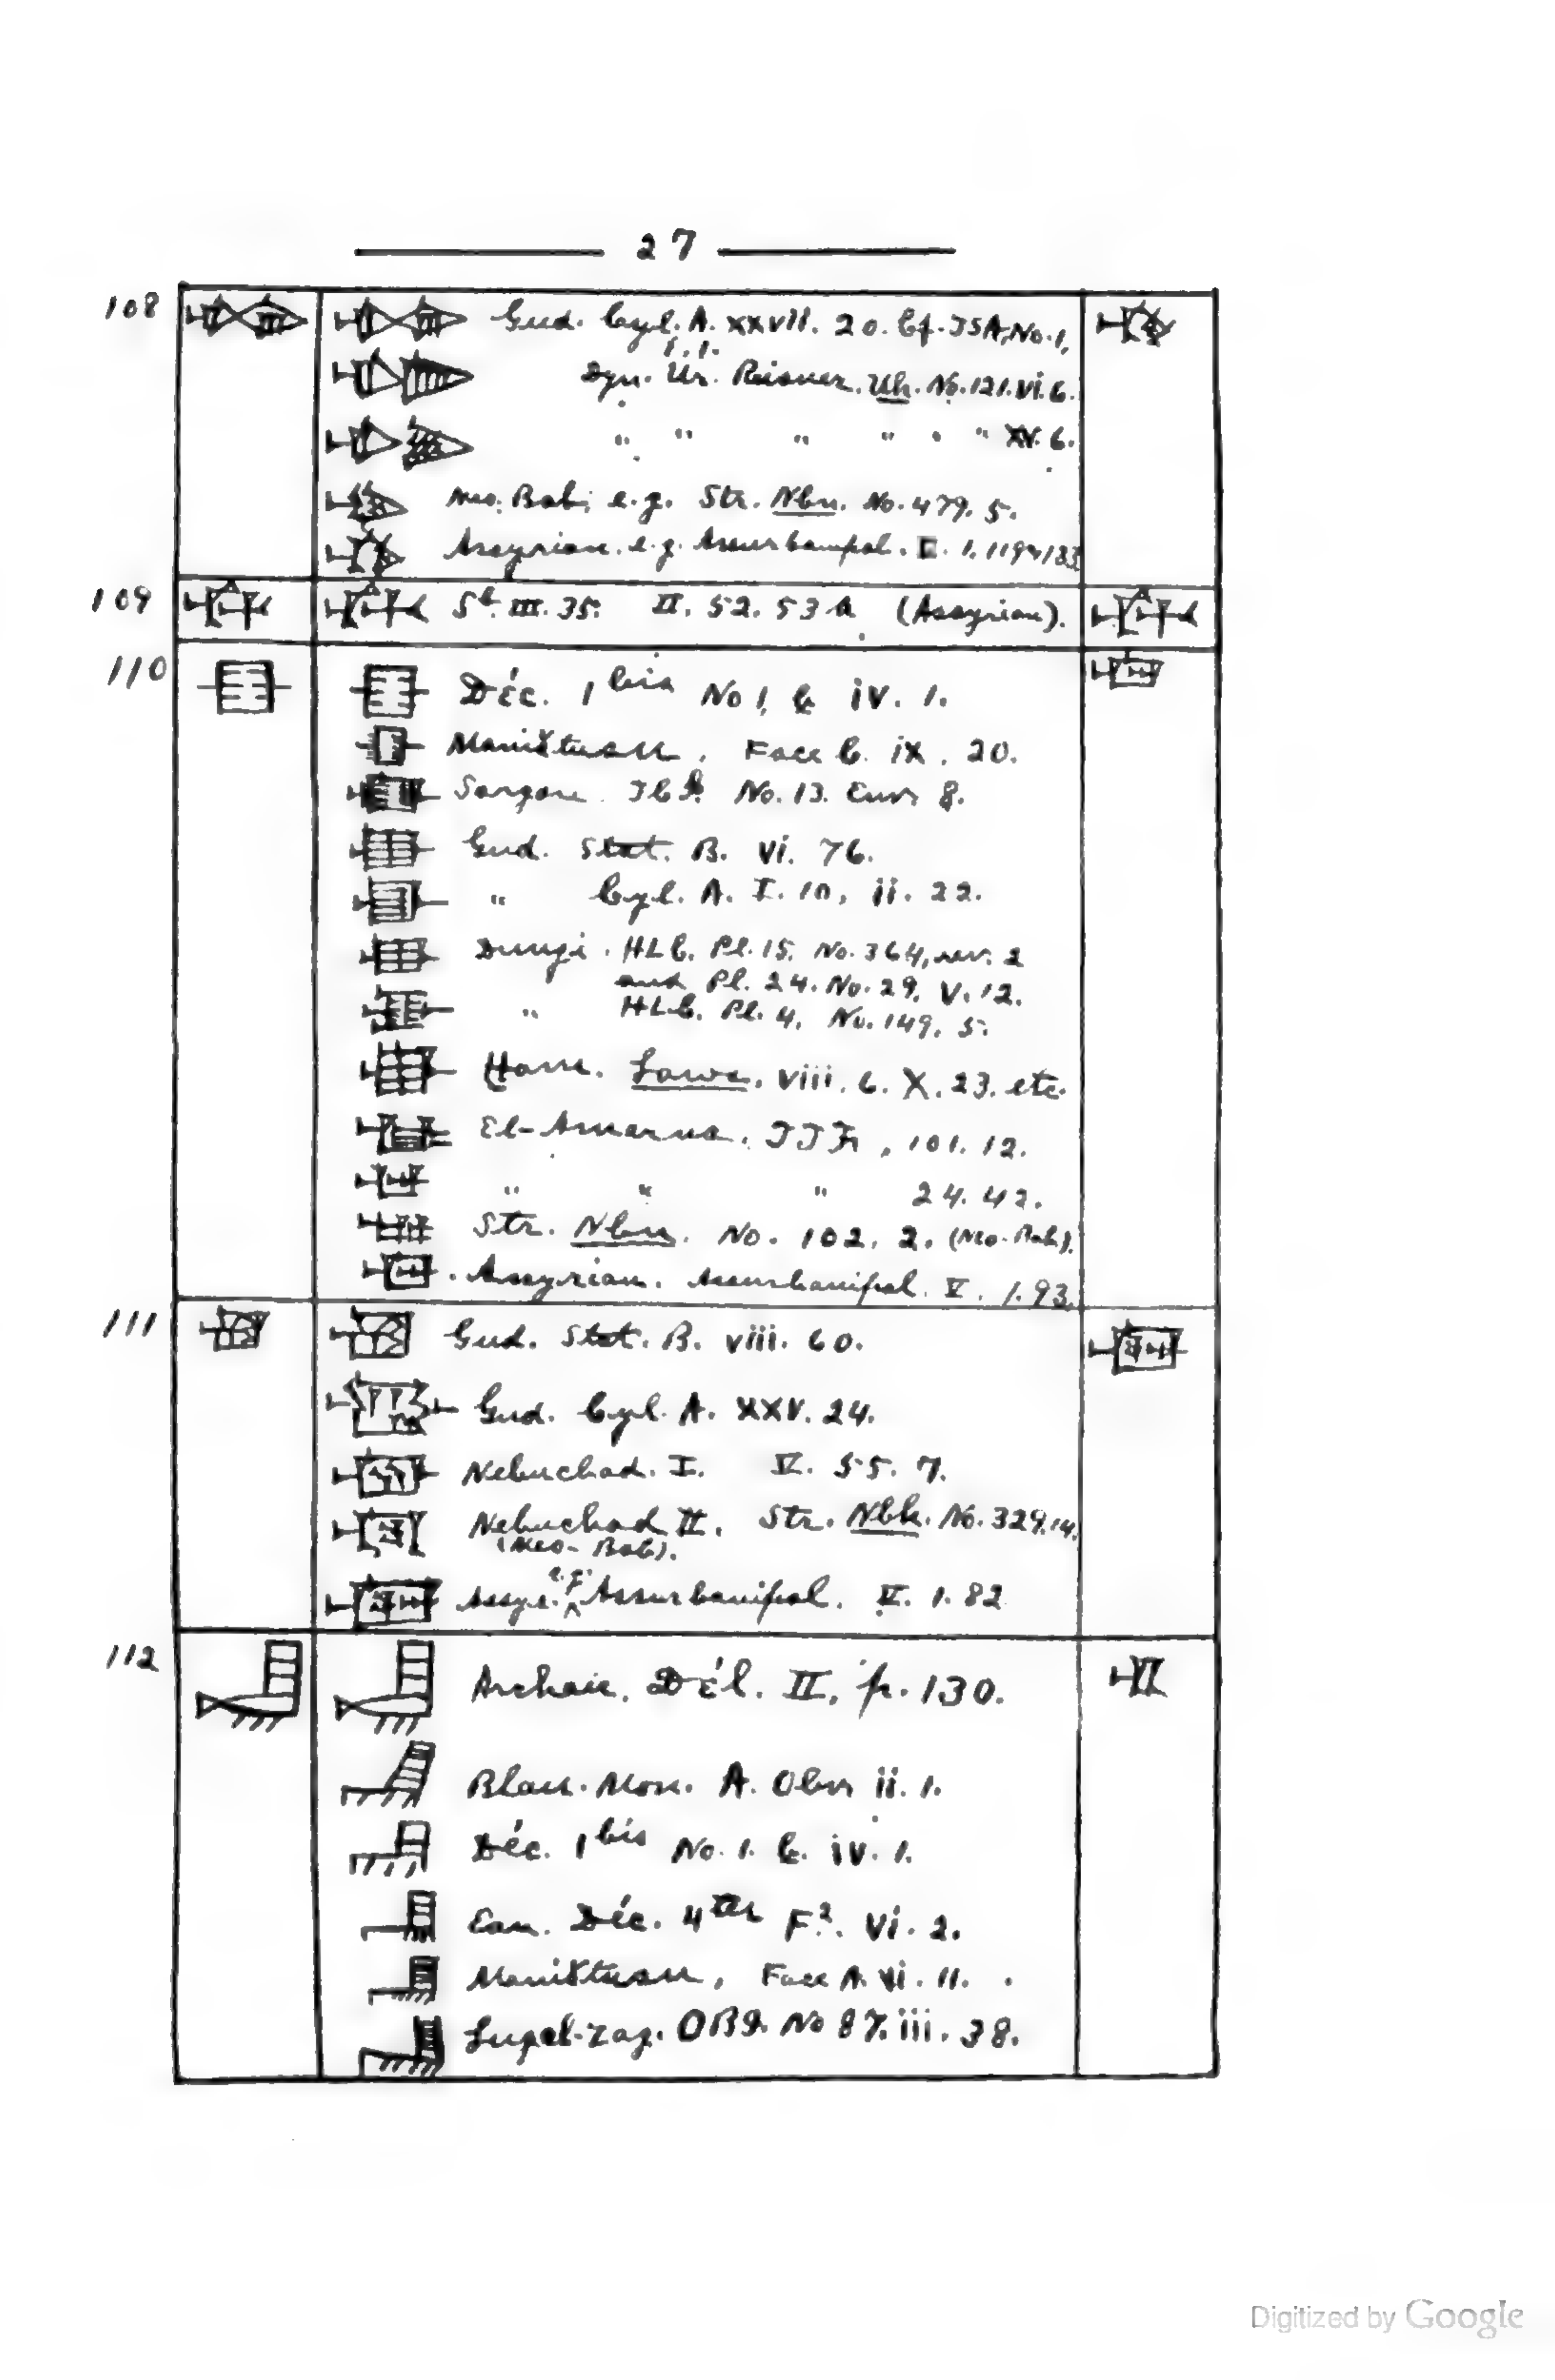 27
108 Gud. Cyl. A. xxvii. 20. Cf. ISA, No. 1,
1, 1.
Dyn. Ur. Reisner. Uk. No. 121. vi. 6.
" " " " " " xv. 6.
Neo. Bab; e.g. Str. Nbn. No. 479. 5.
Assyrian. e.g. Assurbanipal. 1. 119
109 Sb. III. 35. II. 52. 53a (Assyrian).
110 Déc. 1bis No 1, b iv. 1.
Maništusu, Face C. ix. 20.
Sargon No. 13. 8.
Gud. Stat. B. vi. 76.
" Cyl. A. I. 10, ii. 22.
Dungi. HLC. Pl. 15. No. 364, rev. 2
and Pl. 24. No. 29, V. 12.
" HLC. Pl. 4, No. 149. 5.
Hamm. Laws. viii. 6. X. 23. etc.
El-Amarna, 101. 12.
" " " 24. 42.
Str. Nbn. No. 102. 2. (Neo-Bab).
Assyrian. Assurbanipal. V. 1. 93.
111 Gud. Stat. B. viii. 60.
Gud. Cyl. A. XXV. 24.
Nebuchad. I. V. 55. 7.
Nebuchad II. Str. Nbk. No. 329.14.
(Neo-Bab).
Assyr. e.g. Assurbanipal. V. 1. 82
112 Archaic. Dél. II, p. 130.
Blau. Mon. A. Obv ii. 1.
Déc. 1bis No. 1. b. iv. 1.
Ean. Déc. 4ter F2. Vi. 2.
Maništusu, Face A. vi. 11.
Lugal-zag. OBI. No 87. iii. 38.
Digitized by Google